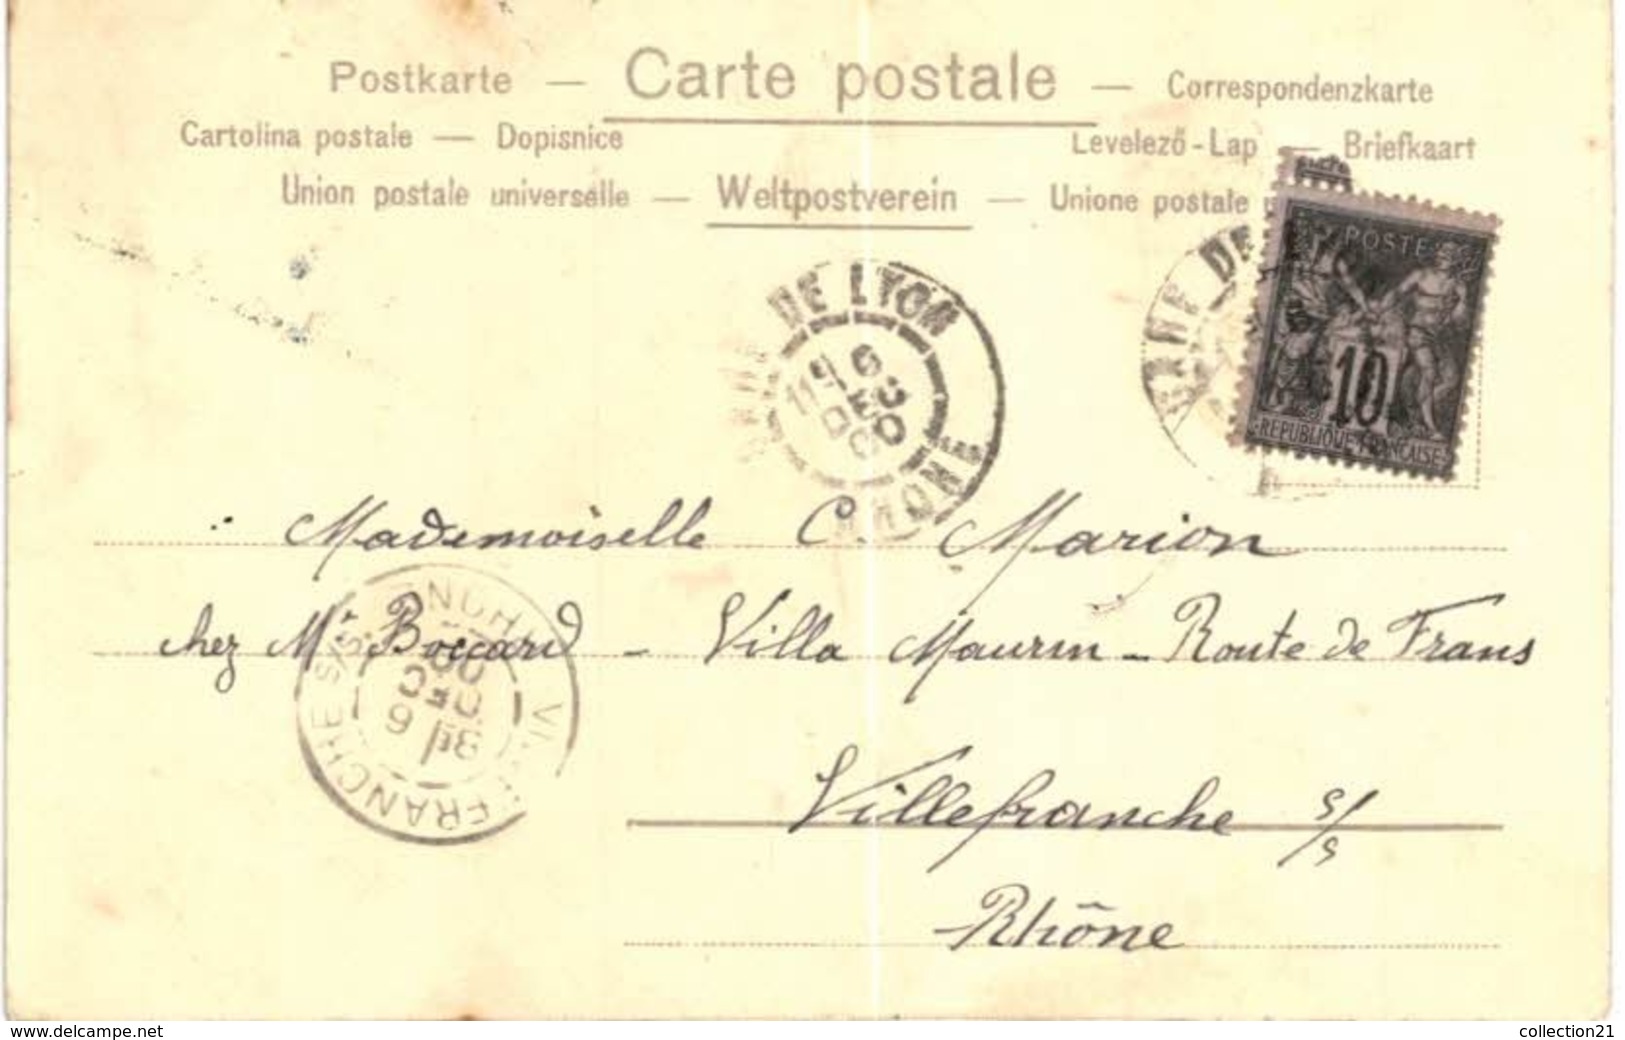 Postkarte — Carte postale — Correspondenzkarte
Cartolina postale — Dopisnice
Levelező-Lap — Briefkaart
Union postale universelle — Weltpostverein — Unione postale
POSTE
10
REPUBLIQUE FRANÇAISE
DE LYON
6
DEC
00
RHONE
GARE DE
Mademoiselle C. Marion
chez Mr Boccard - Villa Maurin - Route de Frans
VILLEFRANCHE S/S
6
DEC
00
Villefranche s/s
Rhône
www.delcampe.net
collection21